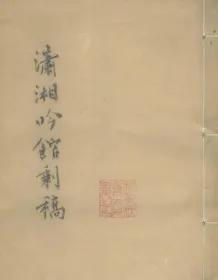 潇湘吟館剩稿